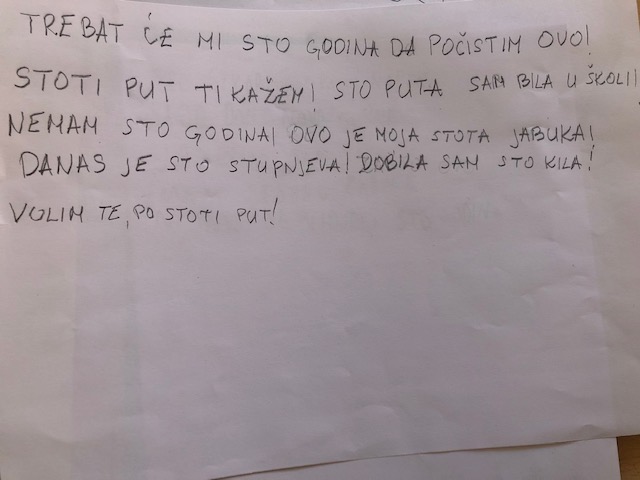 TREBAT ĆE MI STO GODINA DA POČISTIM OVO!
STOTI PUT TI KAŽEM! STO PUTA SAM BILA U ŠKOLI!
NEMAM STO GODINA! OVO JE MOJA STOTA JABUKA!
DANAS JE STO STUPNJEVA! DOBILA SAM STO KILA!
VOLIM TE, PO STOTI PUT!